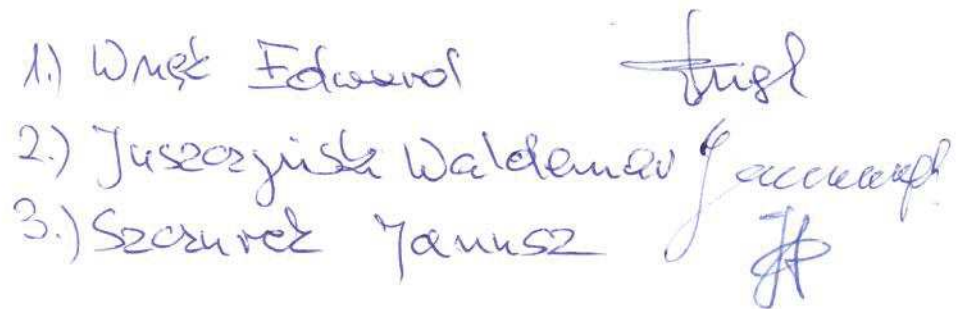 1.) Wnęk Edward
2.) Juszczyński Waldemar
3.) Szczurek Janusz